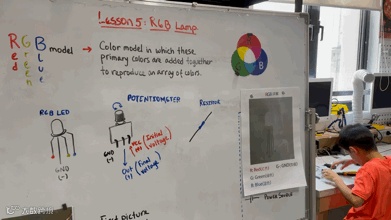 Lesson 5: RGB Lamp
RGB model → Color model in which these
Red
Green
Blue
primary colors are added together
to reproduce an array of colors.
B
POTENTIOMETER
RESISTOR
RGB LED
GND
(-)
GND
(-)
VCC (Initial
(+) Voltage)
OUT (Final
(+) Voltage)
Power Source
First Picture